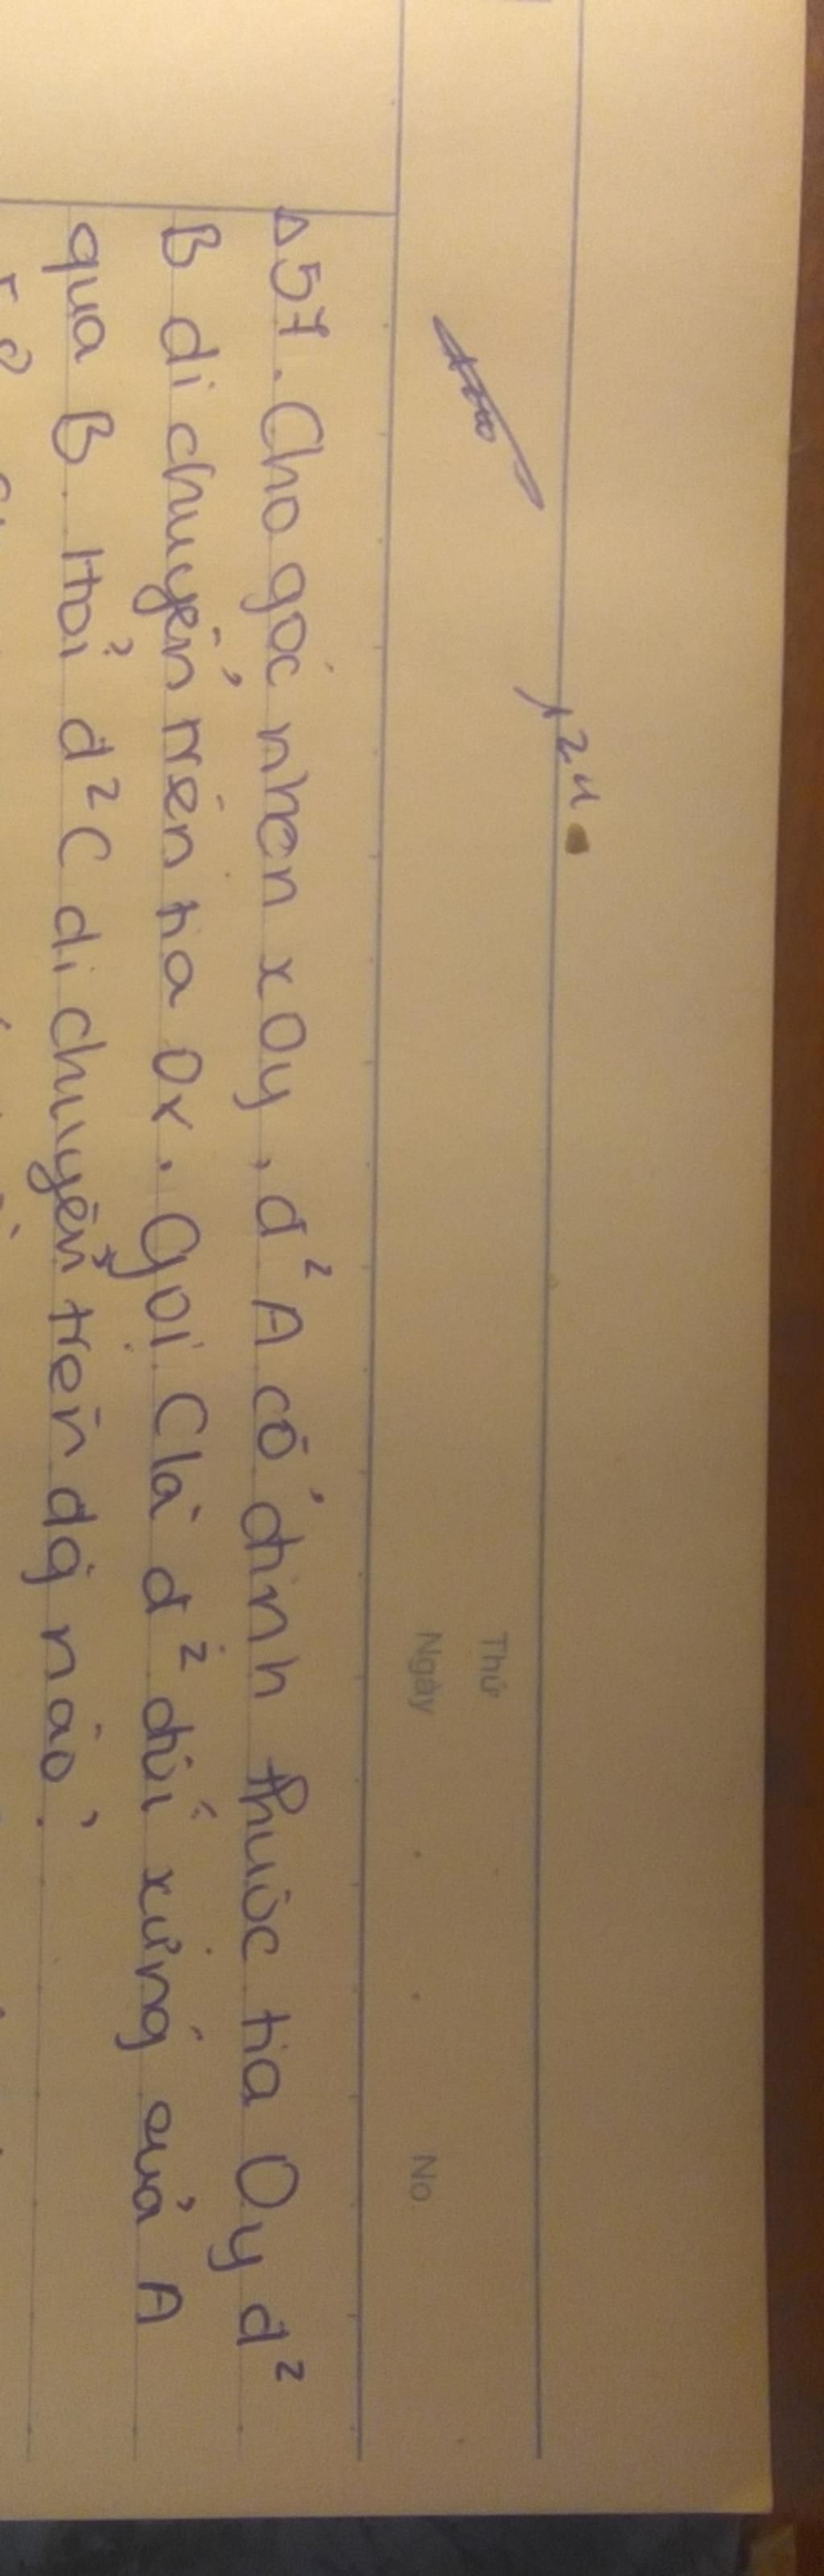 124
Thứ
Ngày
No.
Δ57. Cho góc nhọn xOy, đ² A cố định thuộc tia Oy đ²
B di chuyển trên tia Ox. Gọi C là đ² đối xứng của A
qua B. Hỏi đ² C di chuyển trên đg nào?